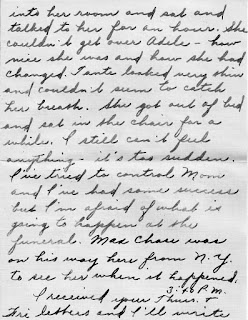 into her room and sat and
talked to her for an hour. She
couldn't get over Adele - how
nice she was and how she had
changed. Tante looked very thin
and couldn't seem to catch
her breath. She got out of bed
and sat in the chair for a
while. I still can't feel
anything - it's too sudden.
I've tried to control Mom
and I've had some success
but I'm afraid of what is
going to happen at the
funeral. Max Chase was
on his way here from N.Y.
to see her when it happened.
3:40 P.M.
I received your Thurs. +
Fri letters and I'll write